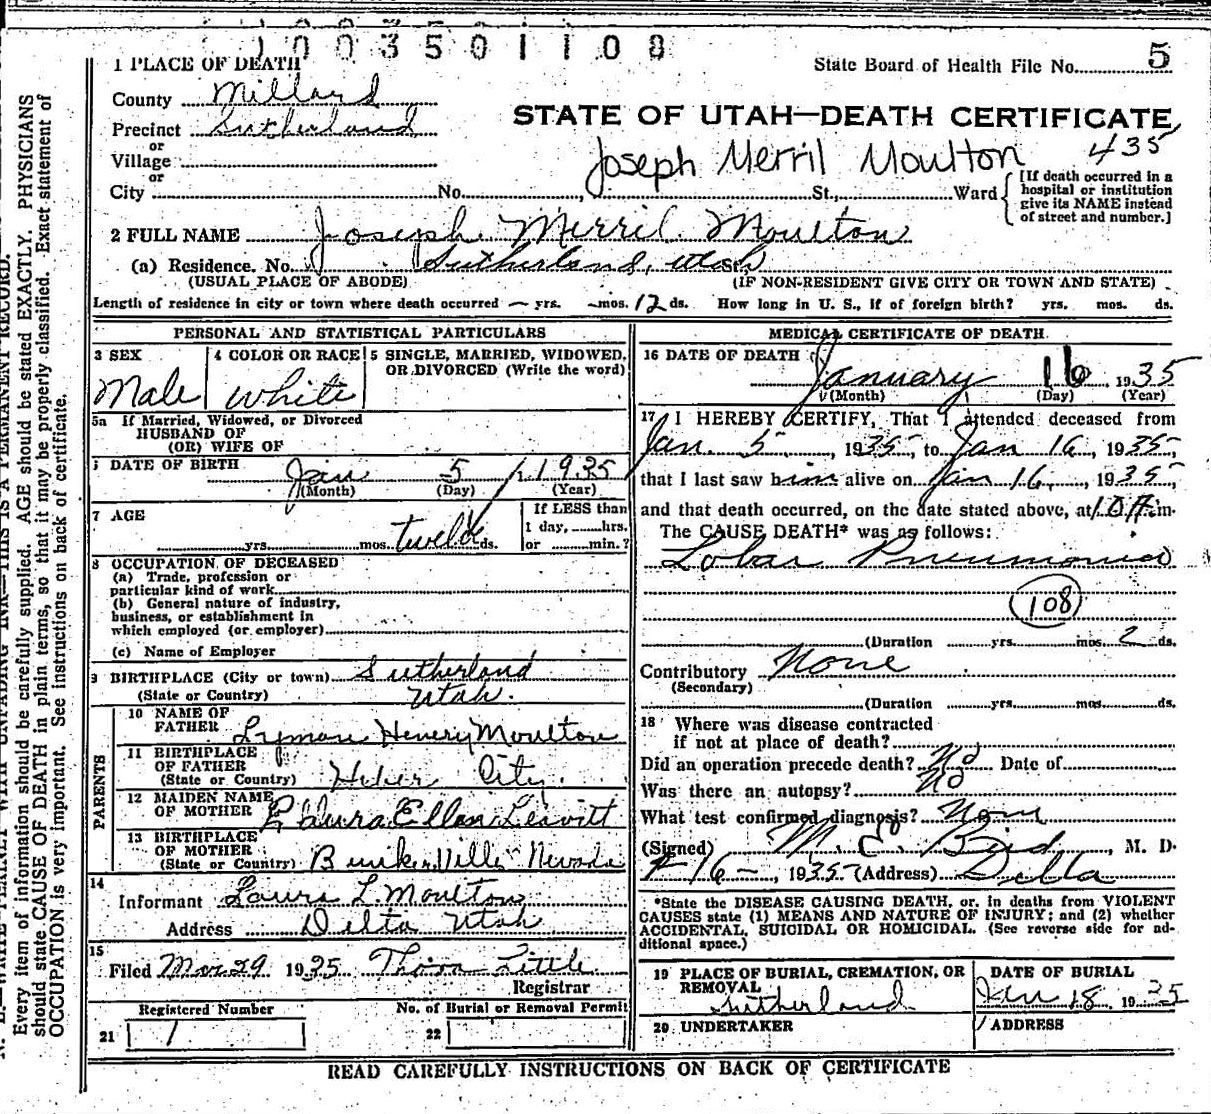 1003501108
1 PLACE OF DEATH
State Board of Health File No. 5
County Millard
STATE OF UTAH—DEATH CERTIFICATE
Precinct Sutherland
435
or
Village
Joseph Merril Moulton
or
City No. St., Ward
[If death occurred in a
hospital or institution
give its NAME instead
of street and number.]
2 FULL NAME Joseph Merril Moulton
(a) Residence. No. Sutherland, Utah St.
(USUAL PLACE OF ABODE) (IF NON-RESIDENT GIVE CITY OR TOWN AND STATE)
Length of residence in city or town where death occurred — yrs. — mos. 12 ds. How long in U. S., if of foreign birth? yrs. mos. ds.
PERSONAL AND STATISTICAL PARTICULARS
3 SEX
Male
4 COLOR OR RACE
White
5 SINGLE, MARRIED, WIDOWED,
OR DIVORCED (Write the word)
5a If Married, Widowed, or Divorced
HUSBAND OF
(OR) WIFE OF
DATE OF BIRTH
Jan 5, 1935
(Month) (Day) (Year)
7 AGE
yrs. mos. twelve ds.
If LESS than
1 day, hrs.
or min.?
8 OCCUPATION OF DECEASED
(a) Trade, profession or
particular kind of work
(b) General nature of industry,
business, or establishment in
which employed (or employer)
(c) Name of Employer
9 BIRTHPLACE (City or town) Sutherland
(State or Country) Utah.
PARENTS
10 NAME OF
FATHER Lyman Henery Moulton
11 BIRTHPLACE
OF FATHER
(State or Country) Heber City.
12 MAIDEN NAME
OF MOTHER Laura Ellen Leavitt
13 BIRTHPLACE
OF MOTHER
(State or Country) Bunkerville Nevada
14
Informant Laura L. Moulton
Address Delta Utah
15
Filed Mar 29 1935 Little
Registrar
Registered Number
21 1
No. of Burial or Removal Permit
22
MEDICAL CERTIFICATE OF DEATH
16 DATE OF DEATH
January 16, 1935
(Month) (Day) (Year)
17 I HEREBY CERTIFY, That I attended deceased from
Jan. 5, 1935, to Jan 16, 1935,
that I last saw him alive on Jan 16, 1935,
and that death occurred, on the date stated above, at 10 A.m.
The CAUSE DEATH* was as follows:
Lobar Pneumonia
108
(Duration yrs. mos. 2 ds.
Contributory None
(Secondary)
(Duration yrs. mos. ds.
18 Where was disease contracted
if not at place of death?
Did an operation precede death? No Date of
Was there an autopsy? No
What test confirmed diagnosis? None
(Signed) M. E. Bird, M. D.
16—, 1935 (Address) Delta
*State the DISEASE CAUSING DEATH, or, in deaths from VIOLENT
CAUSES state (1) MEANS AND NATURE OF INJURY; and (2) whether
ACCIDENTAL, SUICIDAL OR HOMICIDAL. (See reverse side for ad-
ditional space.)
19 PLACE OF BURIAL, CREMATION, OR
REMOVAL
Sutherland
DATE OF BURIAL
Jan 18, 1935
20 UNDERTAKER
ADDRESS
READ CAREFULLY INSTRUCTIONS ON BACK OF CERTIFICATE
Every item of information should be carefully supplied. AGE should be stated EXACTLY. PHYSICIANS
should state CAUSE OF DEATH in plain terms, so that it may be properly classified. Exact statement of
OCCUPATION is very important. See instructions on back of certificate.